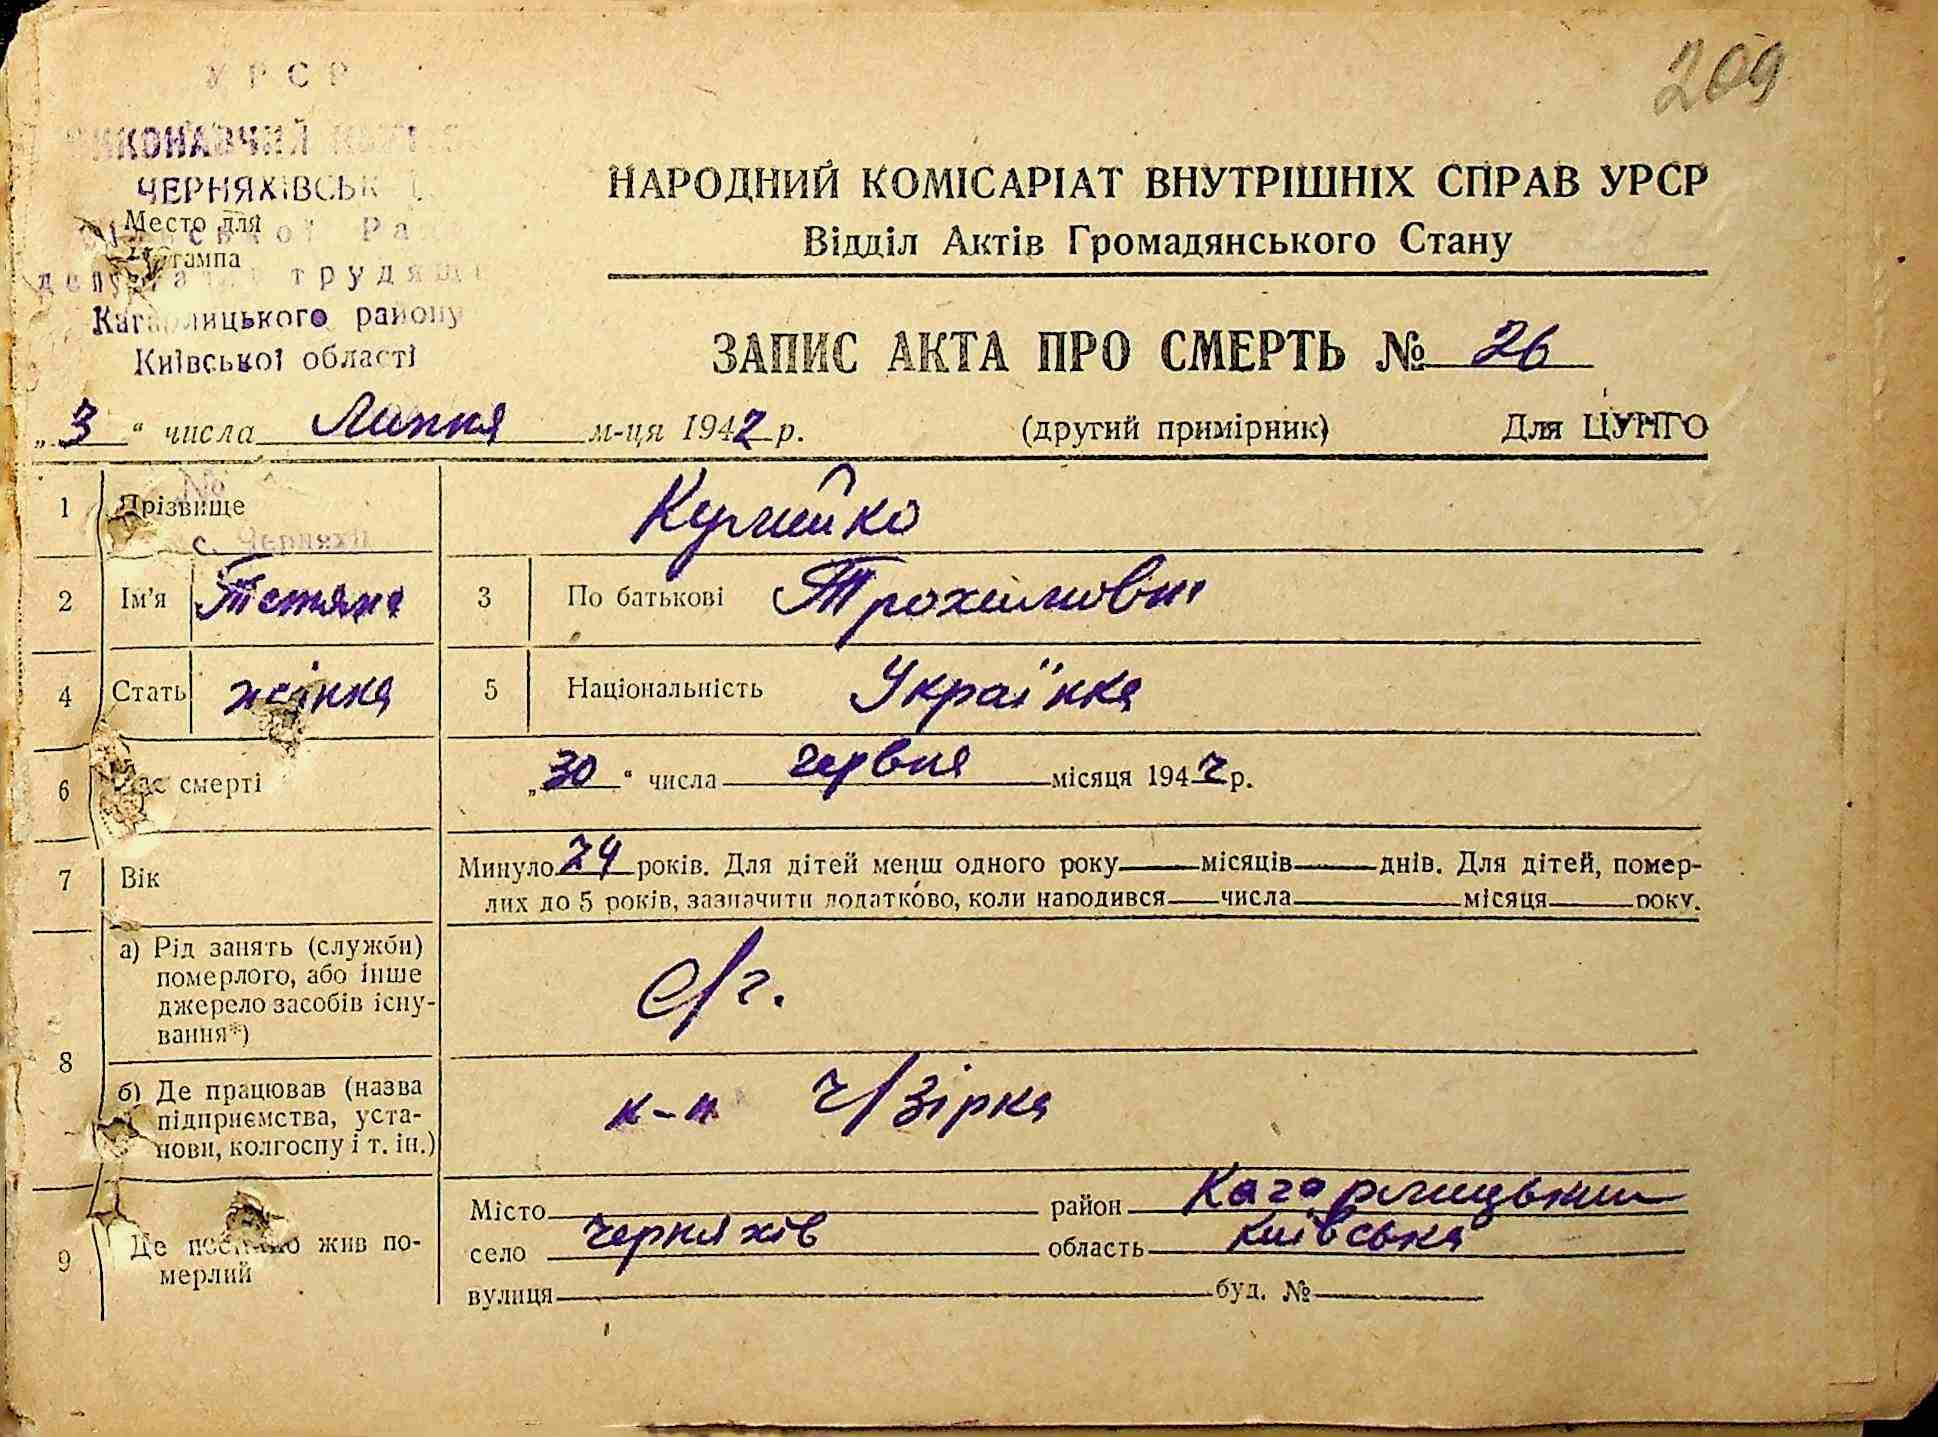 209
УРСР
ВИКОНАВЧИЙ
ЧЕРНЯХІВСЬК
Місто для
штампа
Ради
трудящ
Кагарлицького району
Київської області
НАРОДНИЙ КОМІСАРІАТ ВНУТРІШНІХ СПРАВ УРСР
Відділ Актів Громадянського Стану
ЗАПИС АКТА ПРО СМЕРТЬ № 26
„3“ числа Липня м-ця 1947 р. (другий примірник) Для ЦУНГО
№
1 Прізвище Кулейко
с. Черняхі
2 Ім'я Тетяна 3 По батькові Трохимовна
4 Стать жінка 5 Національність Українка
6 Час смерті „30“ числа червня місяця 1947 р.
7 Вік Минуло 24 років. Для дітей менш одного року місяців днів. Для дітей, помер-
лих до 5 років, зазначити додатково, коли народився числа місяця року.
8 а) Рід занять (служби)
померлого, або інше
джерело засобів існу-
вання*)
с/г.
б) Де працював (назва
підприємства, уста-
нови, колгоспу і т. ін.)
к-п Ч/Зірка
9 Де постійно жив по-
мерлий
Місто район Кагарлицький
село Черняхів область Київська
вулиця буд. №